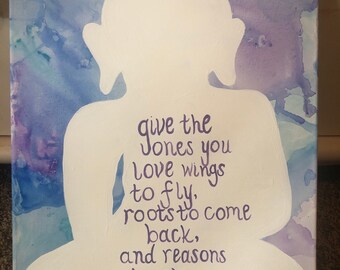 give the
ones you
love wings
to fly,
roots to come
back,
and reasons